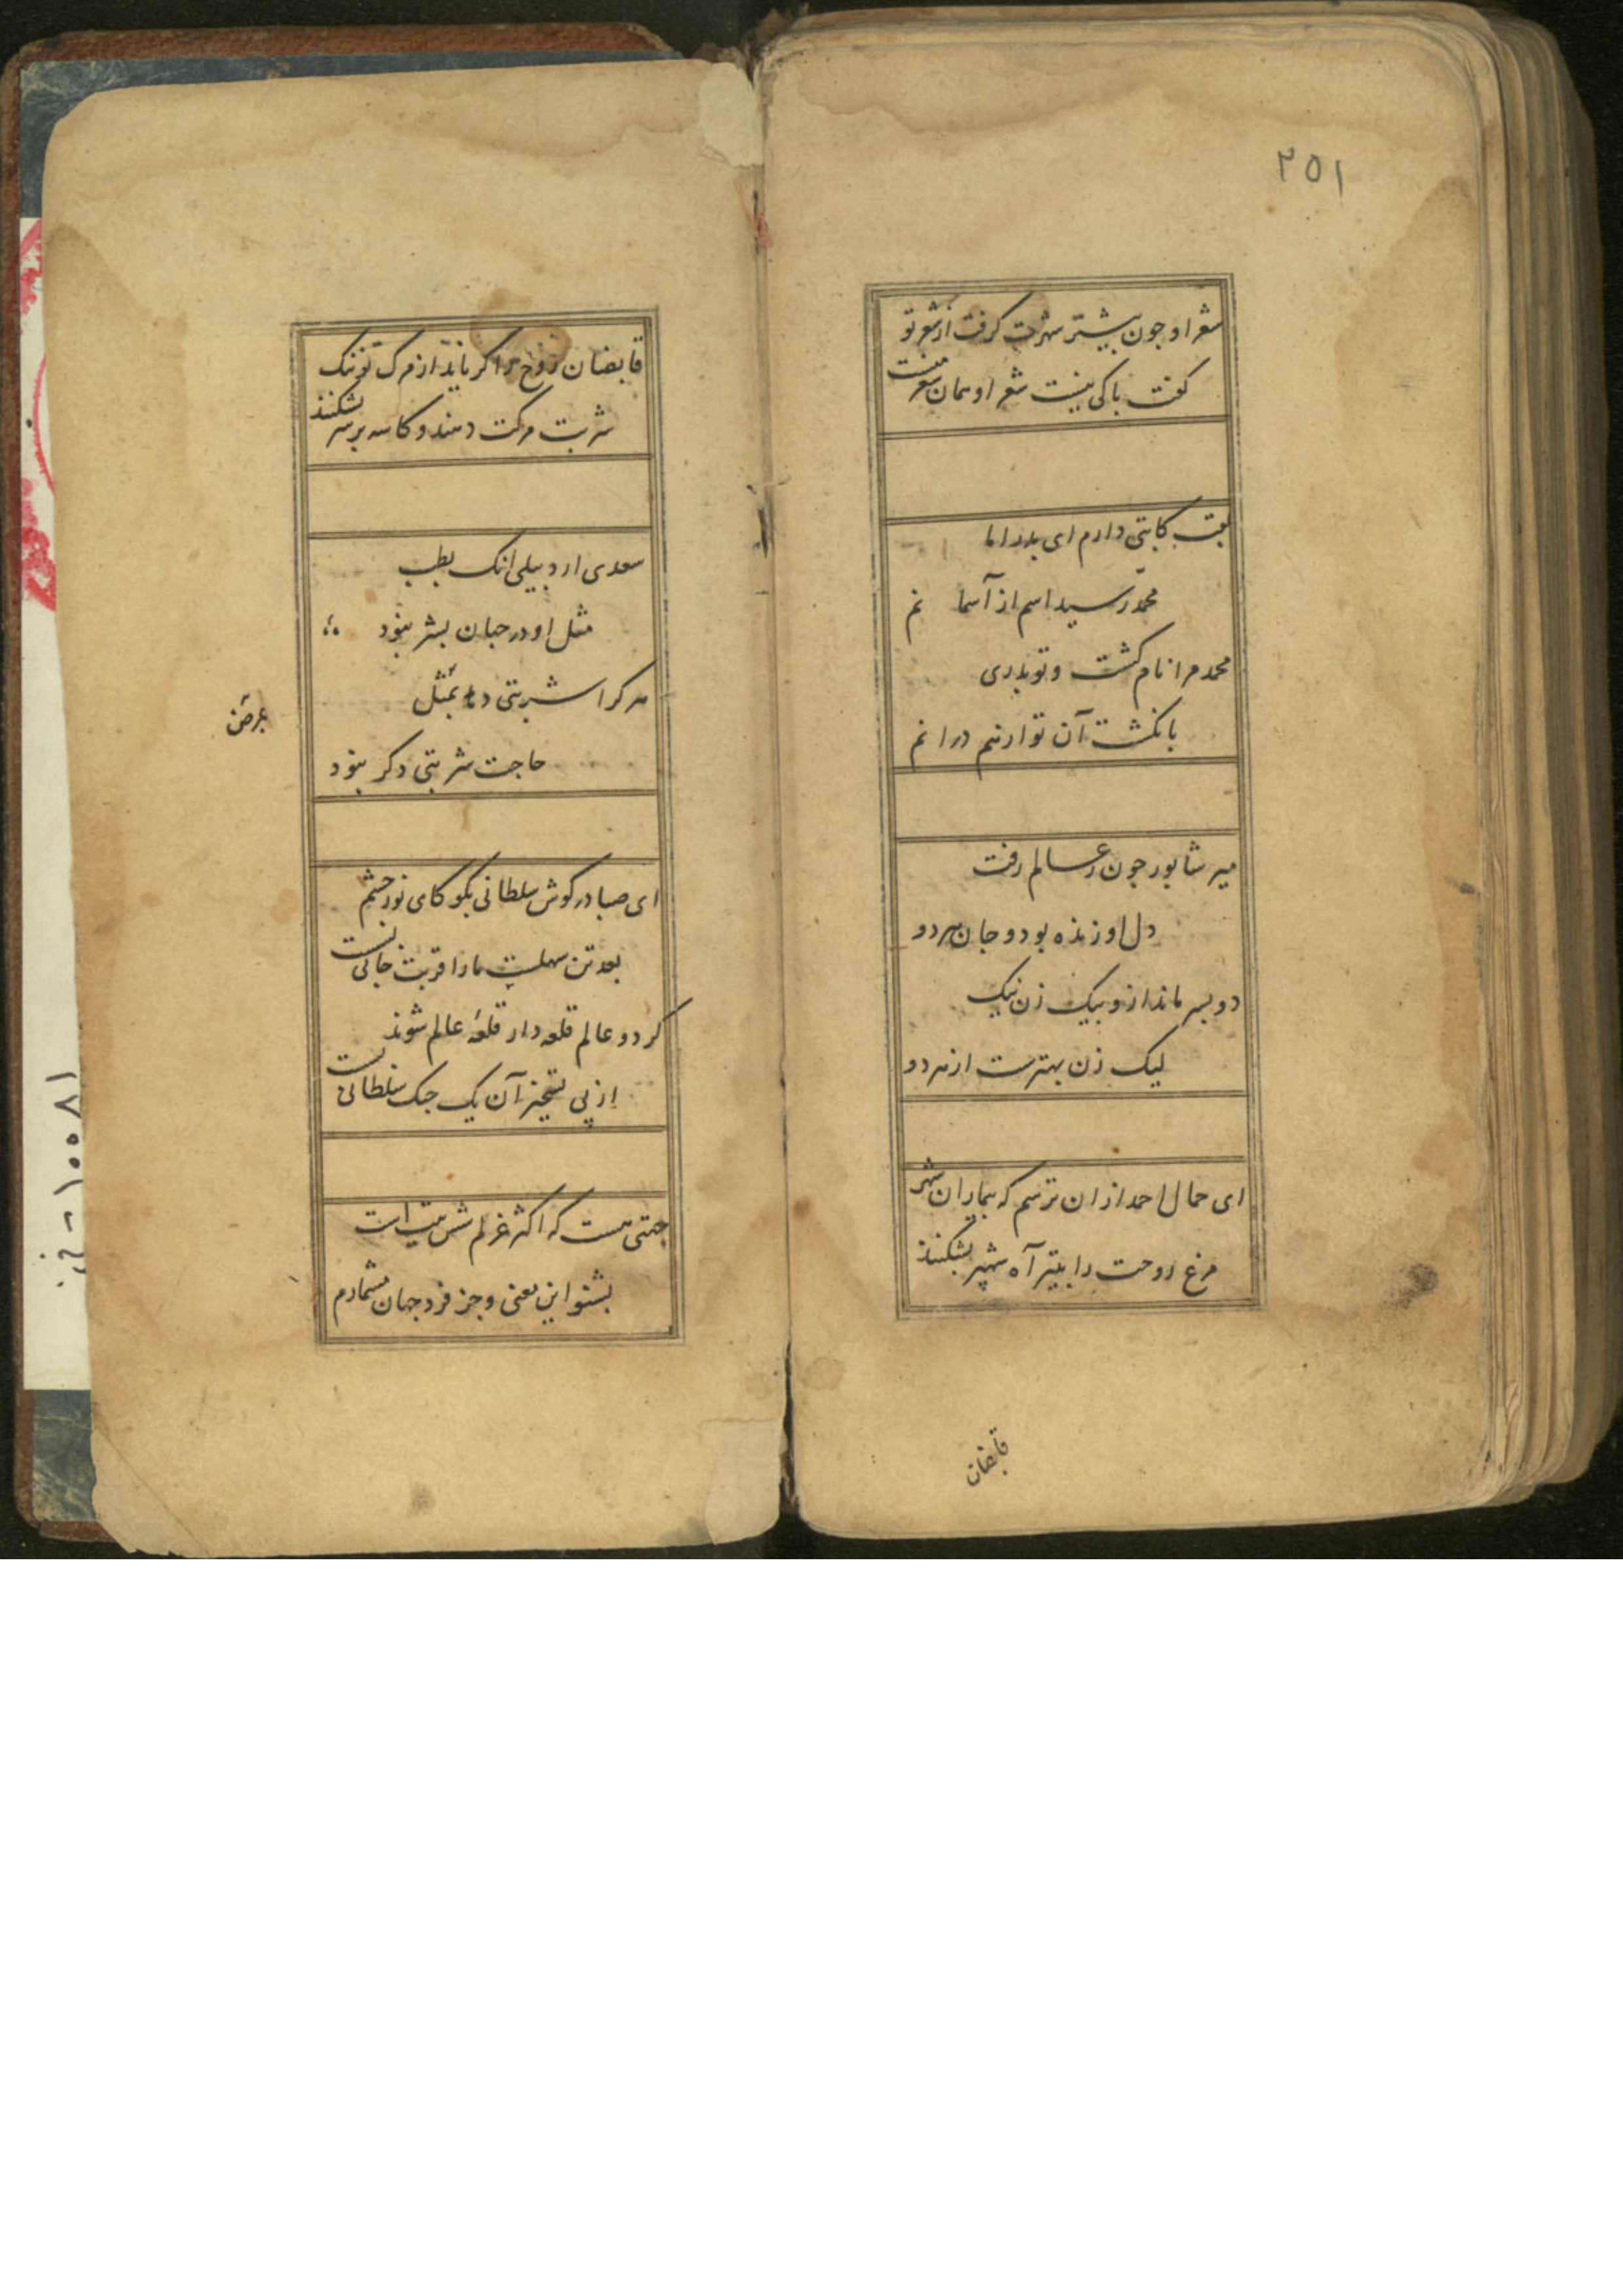 ۲۵۱
شعر او جون بیشتر شهرت کرفت از شعر تو
کفت باکی نیست شعر او همان شعر منست
دارم ای بدر اما
محمد رسید اسم از آسما نم
محمد مرا نام کشت و تو بدری
بانکشت آن تو ارنیم در انم
میر شابور جون ز عالم رفت
دل او زنده بود و جان سپرد و
دو بسر ماند ازو بیک زن نیک
لیک زن بهترست از هر دو
ای جمال احمد ازان ترسم که بیماران شهر
مرغ روحت را بتیر آه شهپر بشکنند
قابضان
قابضان روح را کر باید از مرک تو ننک
شربت مرکت دهند و کاسه بر سر بشکنند
سعدی اردبیلی انک بطب
مثل او در جهان بشر نبود
هر کرا شربتی دهد بمثل
حاجت شربتی دکر نبود
بمرض
ای صبا در کوش سلطانی بکو کای نور چشم
بعد تن سهلست ما را قربت جانی بست
کر دو عالم قلعه دار قلعهٔ عالم شوند
از پی تسخیر آن یک جنک سلطانی بست
جهتی هست که اکثر غزلم شش بیت است
بشنو این معنی و جز فرد جهان مشمارم
۱۰۰۸۱ - خ